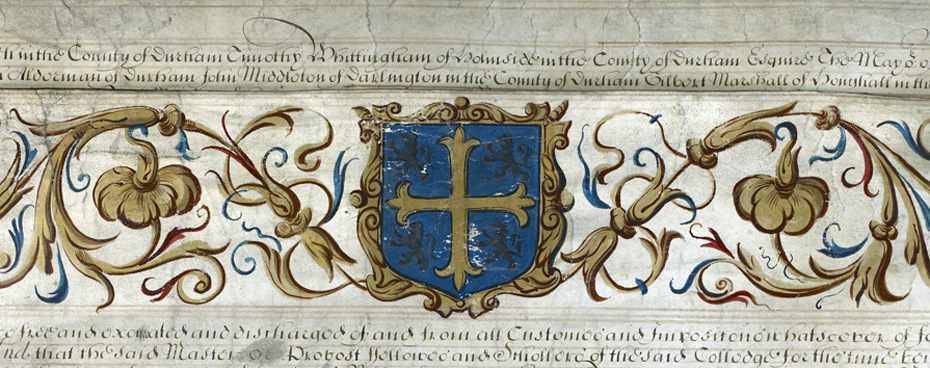 th in the County of Durham Timothy Whittingham of Holmside in the County of Durham Esquire The Mayor
Alderman of Durham John Middleton of Darlington in the County of Durham Gilbert Marshall of Houghall in the
free and exonerated and discharged of and from all Customes and Imposicons whatsoever of
that the said Master or Provost Fellowes and Schollers of the said Colledge for the time